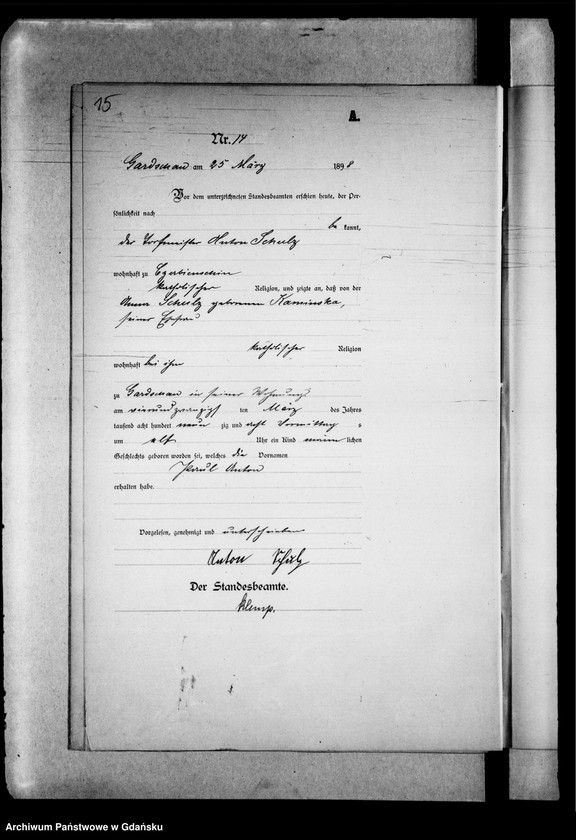 15
A.
Nr. 14
Gardschau am 25 März 1898
Vor dem unterzeichneten Standesbeamten erschien heute, der Per-
sönlichkeit nach
be kannt,
der Torfmeister Anton Schulz
wohnhaft zu
katholischer Religion, und zeigte an, daß von der
Anna Schulz geborenen Kaminska,
seiner Ehefrau
katholischer Religion
wohnhaft bei ihm
zu Gardschau in seiner Wohnung
am vierundzwanzigst ten März des Jahres
tausend acht hundert neun zig und acht Vormittag s
um elf Uhr ein Kind männ lichen
Geschlechts geboren worden sei, welches die Vornamen
Paul Anton
erhalten habe.
Vorgelesen, genehmigt und unterschrieben
Anton Schulz
Der Standesbeamte.
Klemp.
Archiwum Państwowe w Gdańsku